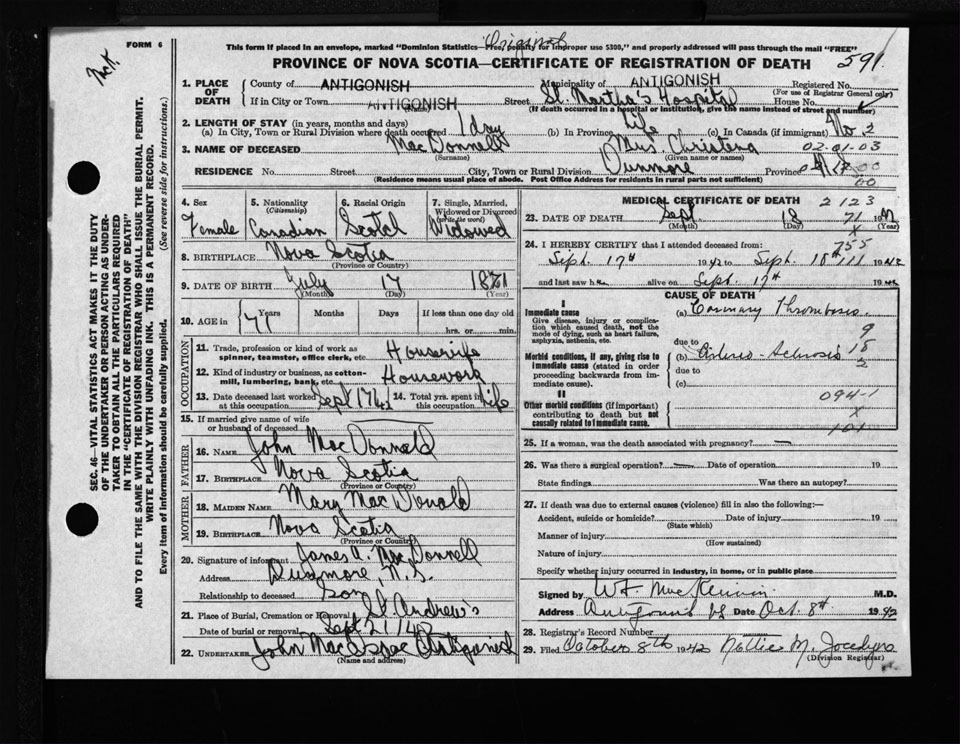 FORM 6
Original
This form if placed in an envelope, marked "Dominion Statistics—Free, penalty for improper use $300," and properly addressed will pass through the mail "FREE"
PROVINCE OF NOVA SCOTIA—CERTIFICATE OF REGISTRATION OF DEATH
591
1. PLACE OF DEATH
County of ANTIGONISH Municipality of ANTIGONISH Registered No.
(For use of Registrar General only)
If in City or Town ANTIGONISH Street St. Martha's Hospital House No.
(Name) (If death occurred in a hospital or institution, give the name instead of street and number)
2. LENGTH OF STAY (in years, months and days)
(a) In City, Town or Rural Division where death occurred 1 day (b) In Province Life (c) In Canada (if immigrant) No. 2
3. NAME OF DECEASED MacDonnell Mrs. Christena 02.01.03
(Surname) (Given name or names)
RESIDENCE No. Street City, Town or Rural Division Dunmore Province
(Residence means usual place of abode. Post Office Address for residents in rural parts not sufficient)
00
4. Sex 5. Nationality (Citizenship) 6. Racial Origin 7. Single, Married, Widowed or Divorced (write the word)
Female Canadian Scotch Widowed
8. BIRTHPLACE Nova Scotia
(Province or Country)
9. DATE OF BIRTH July 17 1871
(Month) (Day) (Year)
10. AGE in 71 Years Months Days If less than one day old
hrs. or min.
OCCUPATION
11. Trade, profession or kind of work as spinner, teamster, office clerk, etc. Housewife
12. Kind of industry or business, as cotton-mill, lumbering, bank, etc. Housework
13. Date deceased last worked at this occupation Sept 1942 14. Total yrs. spent in this occupation Life
15. If married give name of wife or husband of deceased
FATHER
16. NAME John MacDonnald
17. BIRTHPLACE Nova Scotia
(Province or Country)
MOTHER
18. MAIDEN NAME Mary MacDonald
19. BIRTHPLACE Nova Scotia
(Province or Country)
20. Signature of informant James A. MacDonnell
Address Dunmore, N.S.
Relationship to deceased Son
21. Place of Burial, Cremation or Removal St. Andrew's
Date of burial or removal Sept 21/42
22. UNDERTAKER John MacIsaac Antigonish
(Name and address)
MEDICAL CERTIFICATE OF DEATH 2 123
23. DATE OF DEATH Sept. 18 71 19
(Month) (Day) (Year)
X
24. I HEREBY CERTIFY that I attended deceased from: 755
Sept. 17th 1942 to Sept. 18th 111 1942
and last saw h alive on Sept. 17th 19
CAUSE OF DEATH
I
Immediate cause (a) Coronary Thrombosis.
Give disease, injury or complication which caused death, not the mode of dying, such as heart failure, asphyxia, asthenia, etc.
due to 9
Morbid conditions, if any, giving rise to immediate cause (stated in order proceeding backwards from immediate cause).
(b) Arterio-sclerosis 18
due to 2
(c)
II
Other morbid conditions (if important) contributing to death but not causally related to immediate cause.
094-1
X
101
25. If a woman, was the death associated with pregnancy? —
26. Was there a surgical operation? — Date of operation 19
State findings Was there an autopsy?
27. If death was due to external causes (violence) fill in also the following:—
Accident, suicide or homicide? Date of injury 19
(State which)
Manner of injury
(How sustained)
Nature of injury
Specify whether injury occurred in industry, in home, or in public place
Signed by W.F. MacKinnon M.D.
Address Antigonish Date Oct. 8th 1942
28. Registrar's Record Number
29. Filed October 8th 1942 Nettie M. Jocelyn
(Division Registrar)
SEC. 46—VITAL STATISTICS ACT MAKES IT THE DUTY
OF THE UNDERTAKER OR PERSON ACTING AS UNDER-
TAKER TO OBTAIN ALL THE PARTICULARS REQUIRED
IN THE "CERTIFICATE OF REGISTRATION OF DEATH"
AND TO FILE THE SAME WITH THE DIVISION REGISTRAR WHO SHALL ISSUE THE BURIAL PERMIT.
WRITE PLAINLY WITH UNFADING INK. THIS IS A PERMANENT RECORD.
Every item of information should be carefully supplied. (See reverse side for instructions.)